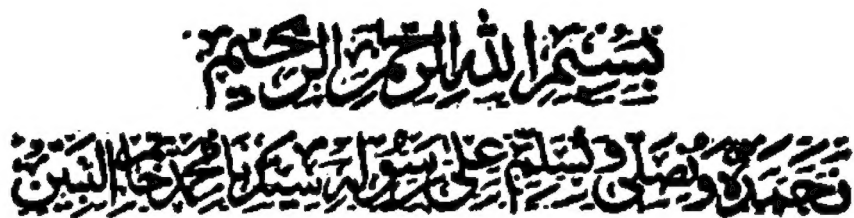 بِسْمِ اللهِ الرَّحْمٰنِ الرَّحِيْمِ
نَحْمَدُهٗ وَنُصَلِّیْ وَنُسَلِّمُ عَلٰی رَسُوْلِهٖ سَيِّدِنَا مُحَمَّدٍ خَاتَمِ النَّبِيّٖنَ